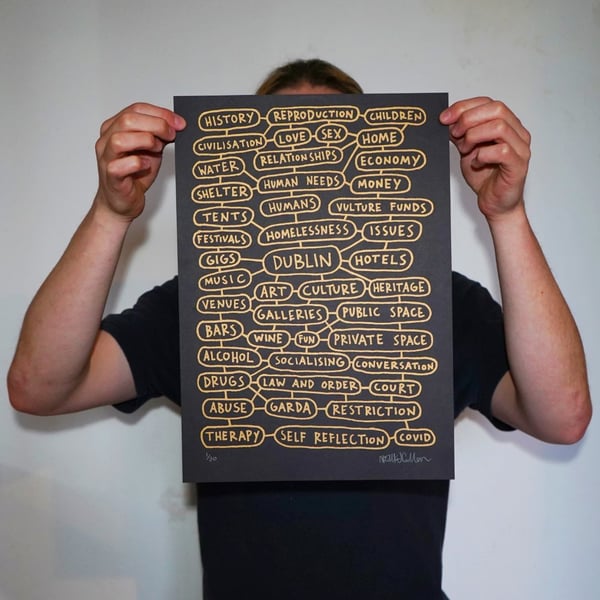 HISTORY REPRODUCTION CHILDREN
CIVILISATION LOVE SEX HOME
WATER RELATIONSHIPS ECONOMY
SHELTER HUMAN NEEDS MONEY
TENTS HUMANS VULTURE FUNDS
FESTIVALS HOMELESSNESS ISSUES
GIGS DUBLIN HOTELS
MUSIC ART CULTURE HERITAGE
VENUES GALLERIES PUBLIC SPACE
BARS WINE FUN PRIVATE SPACE
ALCOHOL SOCIALISING CONVERSATION
DRUGS LAW AND ORDER COURT
ABUSE GARDA RESTRICTION
THERAPY SELF REFLECTION COVID